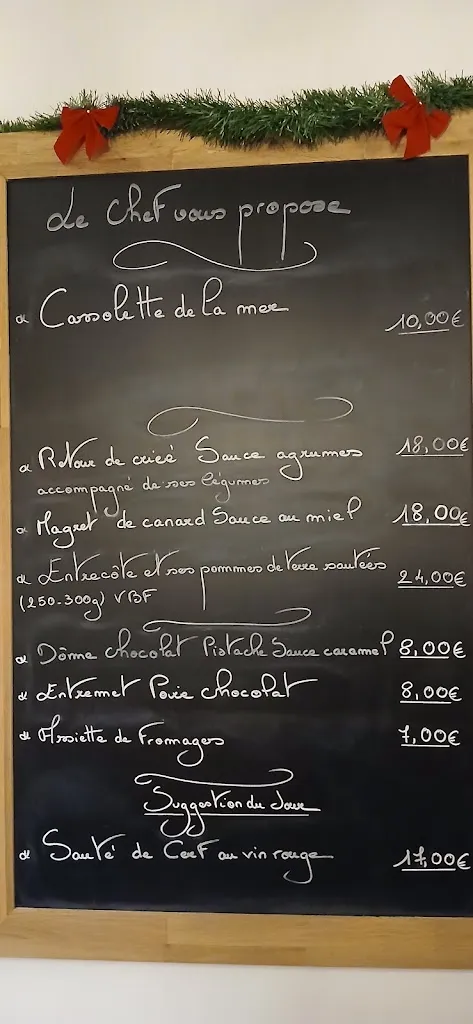 Le Chef vous propose
Cassolette de la mer 10,00€
Retour de criée Sauce agrumes 18,00€
accompagné de ses légumes
Magret de canard Sauce au miel 18,00€
Entrecôte et ses pommes de terre sautées 24,00€
(250-300g) VBF
Dôme chocolat Pistache Sauce caramel 8,00€
Entremet Poire chocolat 8,00€
Assiette de Fromages 7,00€
Suggestion du Jour
Sauté de Cerf au vin rouge 17,00€